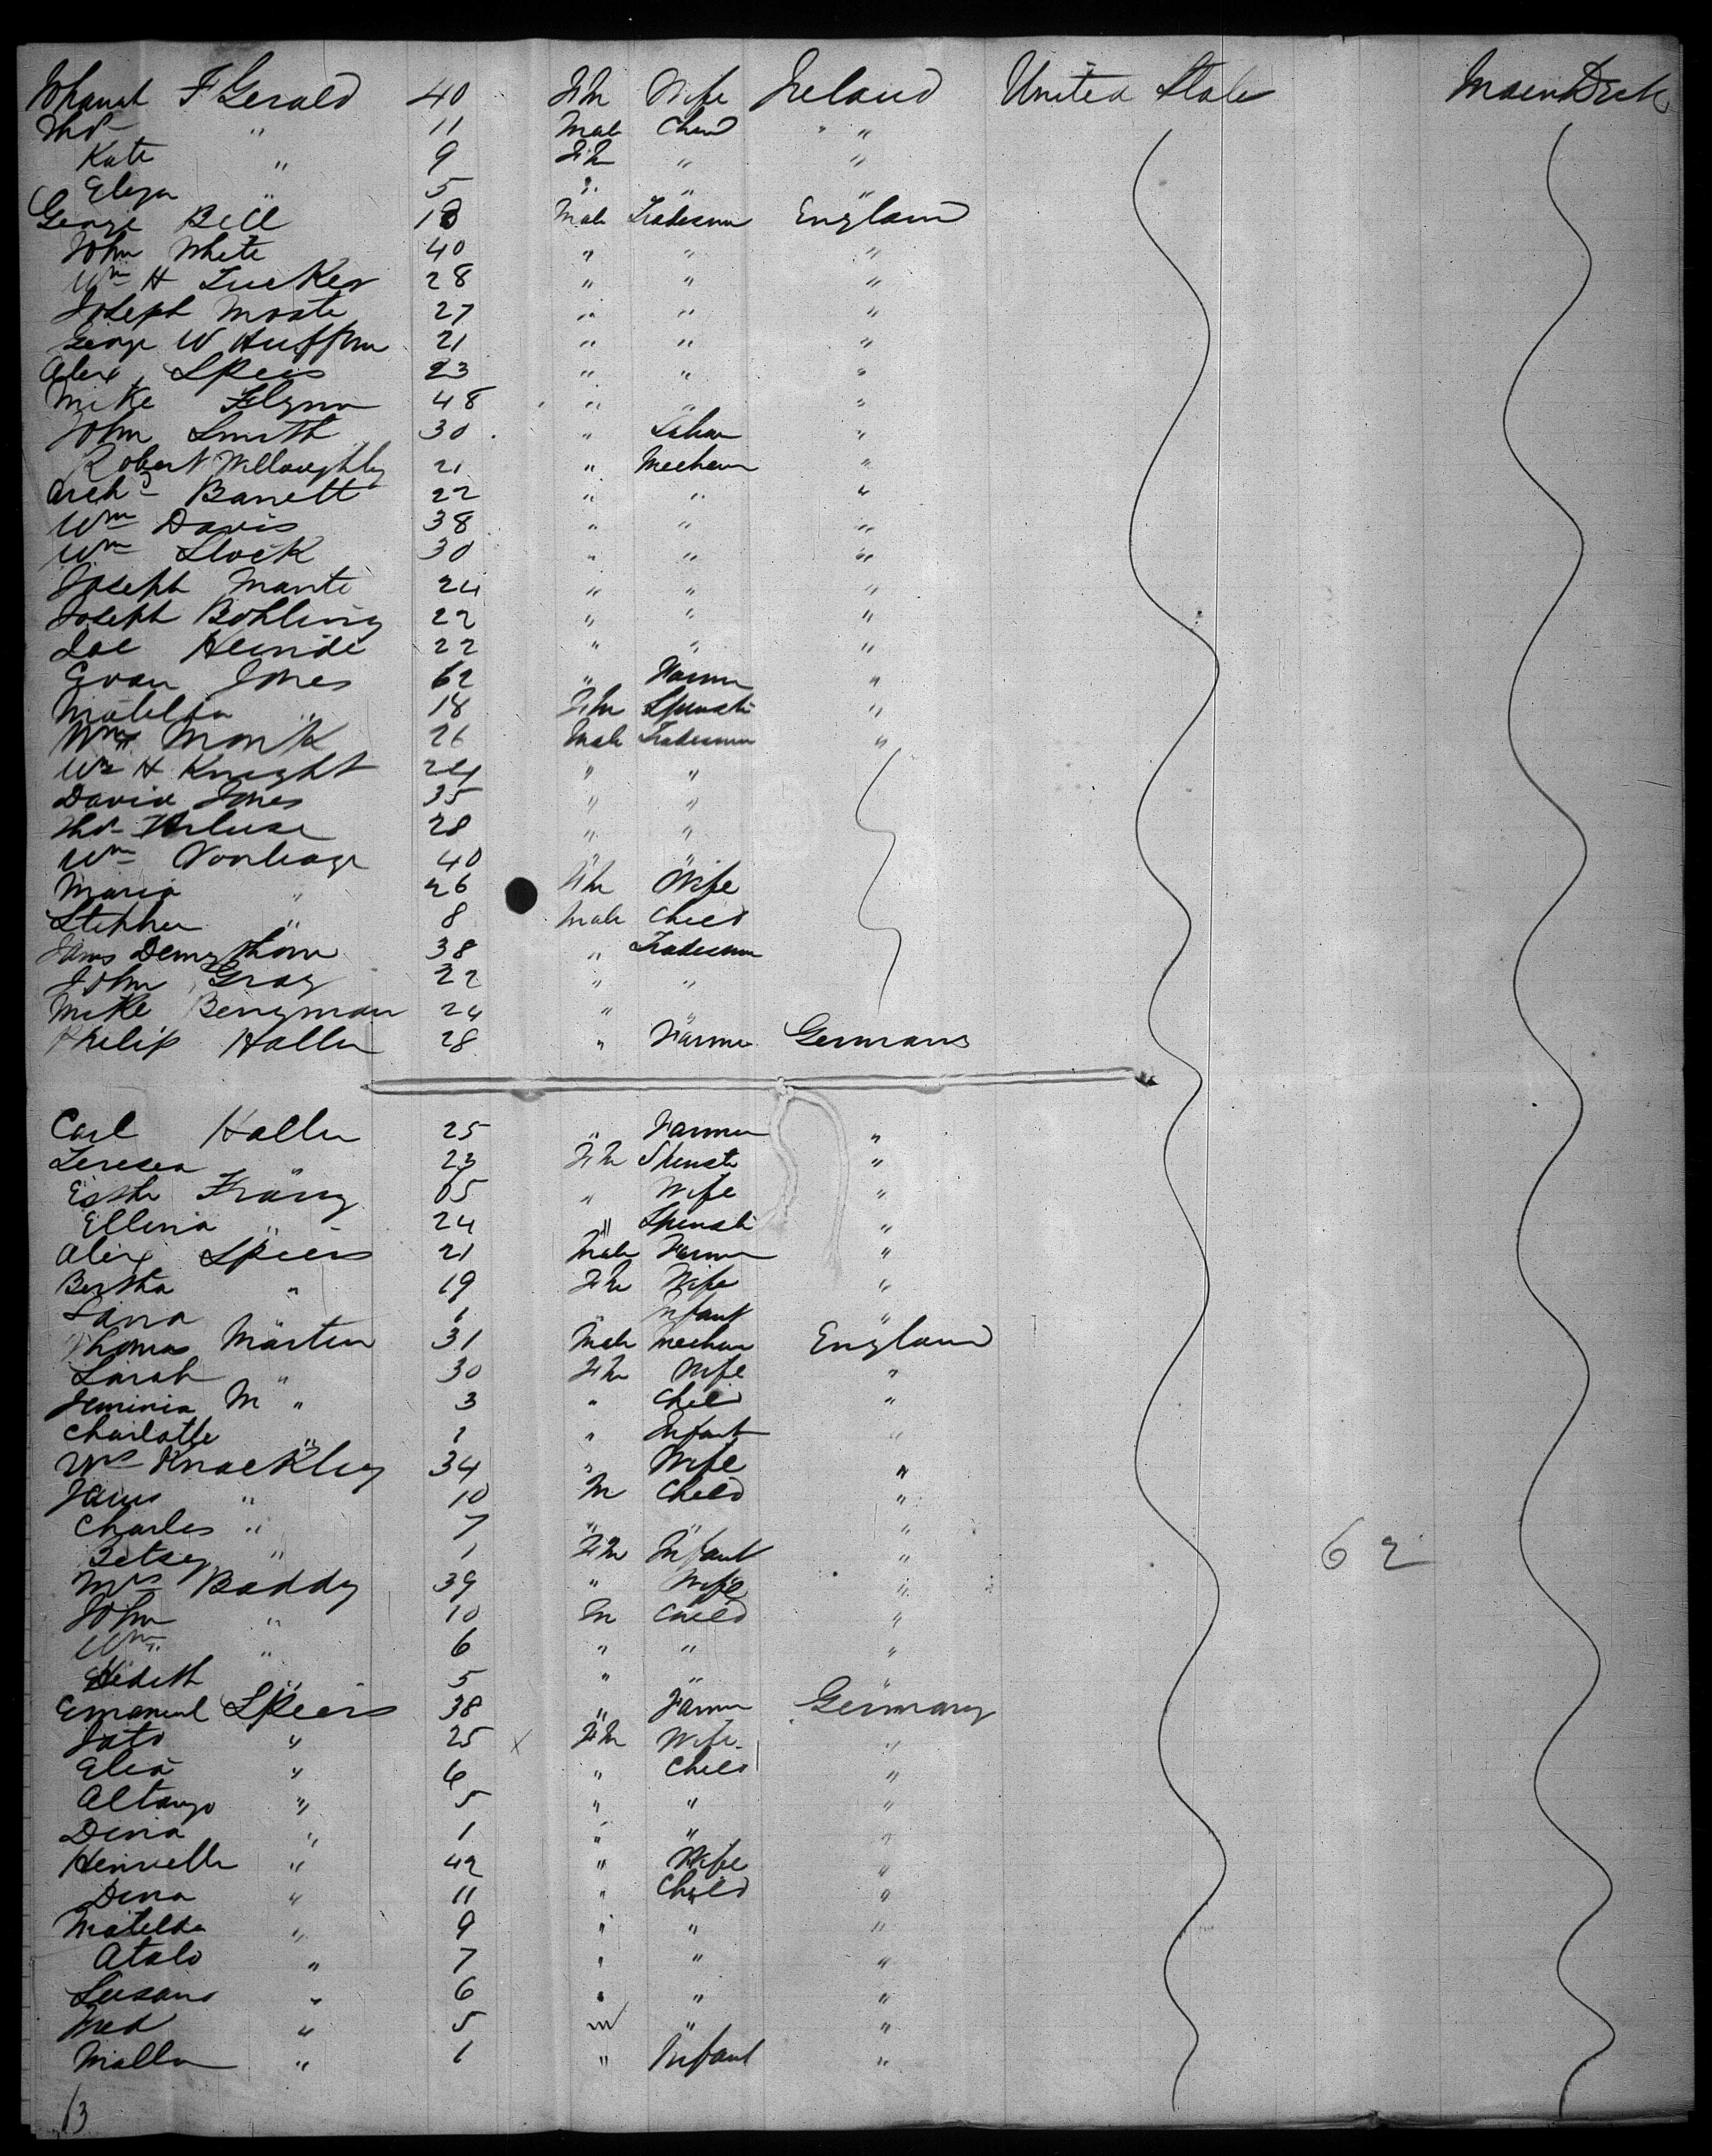 Johanah F Gerald 40 Fem Wife Ireland United States Main Deck
Thos " 11 Male Child " "
Kate " 9 Fem " "
Eliza " 5 " " "
George Bell 18 Male Tradesman England
John White 40 " " "
Wm H Tucker 28 " " "
Joseph Moate 27 " " "
George W Huffam 21 " " "
Alex Speirs 23 " " "
Mike Flynn 48 " " "
John Smith 30 " Labour "
Robert Willoughby 21 " Mechan "
Archd Barrett 22 " " "
Wm Davis 38 " " "
Wm Slock 30 " " "
Joseph Mante 24 " " "
Joseph Bohling 22 " " "
Joe Heinde 22 " " "
Evan Jones 62 " Farmer "
Matilda " 18 Fem Spinster "
Wm Monk 26 Male Tradesman "
Wm H Knight 24 " "
David Jones 35 " "
Thos 28 " "
Wm 40 " "
Maria " 26 Fem Wife
Stephen " 8 Male Child
James 38 " Tradesman
John Gray 22 " "
Mike Bengman 24 " "
Philip Haller 28 " Farmer Germans
Carl Haller 25 " Farmer "
Teresea " 23 Fem Spinster "
Esther Franz 65 " Wife "
Ellena " 24 " Spinster "
Alex Speirs 21 Male Farmer "
Bertha " 19 Fem Wife "
Lana 1 " Infant "
Thomas Martin 31 Male Mechan England
Sarah " 30 Fem Wife "
Jeminia M " 3 " Child "
Charlotte " 1 " Infant "
Mrs Knackley 34 " Wife "
James " 10 M Child "
Charles " 7 " " "
Betsey " 1 Fem Infant " 62
Mrs Baddy 39 " Wife "
John " 10 M Child "
Wm " 6 " " "
Hedith " 5 " " "
Emanuel Speirs 38 " Farmer Germany
Jato " 25 x Fem Wife "
Elia " 6 " Child "
Altango " 5 " " "
Dina " 1 " " "
Henriella " 42 " Wife "
Dina " 11 " Child "
Matilda " 9 " " "
Atalo " 7 " " "
Susano " 6 " " "
Fred " 5 m " "
Malla " 1 " Infant "
63